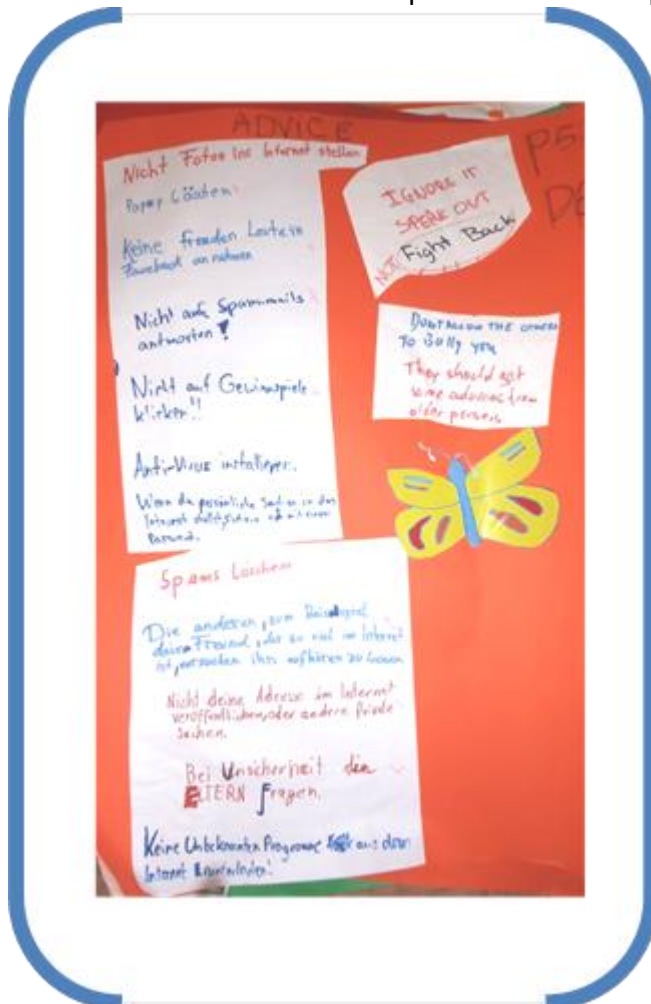 ADVICE
Nicht Fotos ins Internet stellen
Löschen
Keine fremden
annehmen
Nicht auf Spam-mails
antworten!
Nicht auf Gewinnspiele
klicken!!
Anti-Virus installieren.
Wenn du persönliche Sachen in das
Internet
Passwort.
Spams Löschen
Die anderen, zum
deinen Freund, der zu viel im Internet
ist, versuchen ihn aufhören zu lassen
Nicht deine Adresse im Internet
veröffentlichen, oder andere Private
Sachen.
Bei Unsicherheit die
ELTERN Fragen.
Keine Unbekannten Programme aus dem
Internet
IGNORE IT
SPEAK OUT
NOT Fight Back
DONT ALLOW THE OTHERS
TO Bully you
They should get
some advices from
older persons